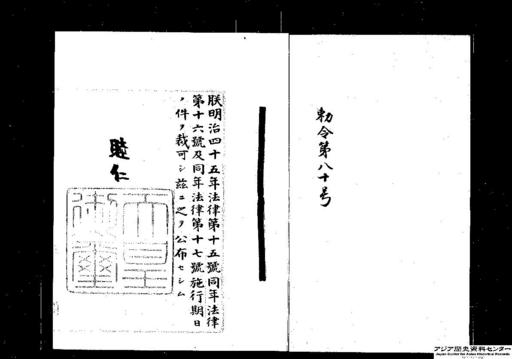 勅令第八十号
朕明治四十五年法律第十五號同年法律
第十六號及同年法律第十七號施行期日
ノ件ヲ裁可シ茲ニ之ヲ公布セシム
睦仁
天皇
御璽
アジア歴史資料センター
Japan Center for Asian Historical Records